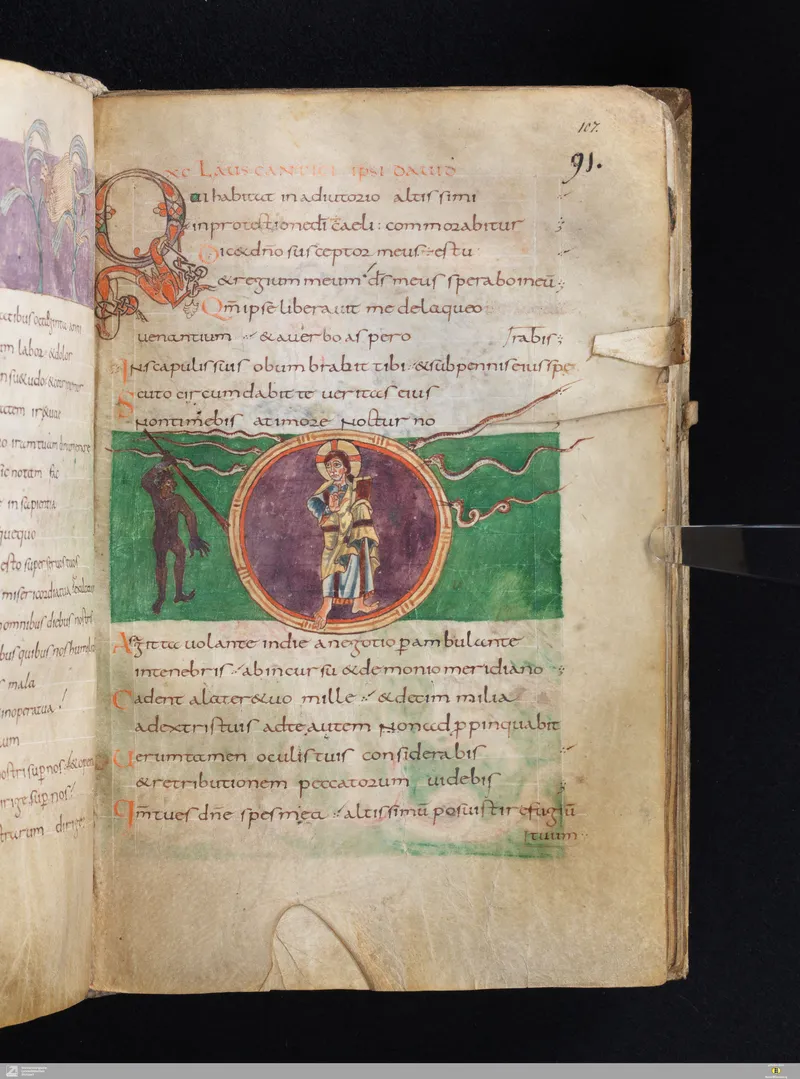 107.
91.
XC LAUS CANTICI IPSI DAVID
Qui habitat in adiutorio altissimi
in protectione di caeli : commorabitur
Dic& dno susceptor meus es tu
& regium meum ds meus sperabo in eu
Qm ipse liberauit me de laqueo
uenantium & a uerbo aspero
In scapulis suis obumbrabit tibi & sub pennis eius spe
rabis
Scuto circumdabit te ueritas eius
Non timebis a timore nocturno
A sagitta uolante in die a negotio perambulante
in tenebris ab incursu & demonio meridiano
Cadent a latere tuo mille & decim milia
a dextris tuis ad te autem non adppinquabit
Uerumtamen oculis tuis considerabis
& retributionem peccatorum uidebis
Qm tu es dne spes mea altissimu posuisti refugiu
tuum
atibus
labor & dolor
irae tuae
notam fac
in sapientia
quequo
esto super seruos tuos
misericordia tua
omnibus diebus nostris
bus quibus nos humilia
mala
in opera tua
nostri sup nos & opera
dirige sup nos
dirige